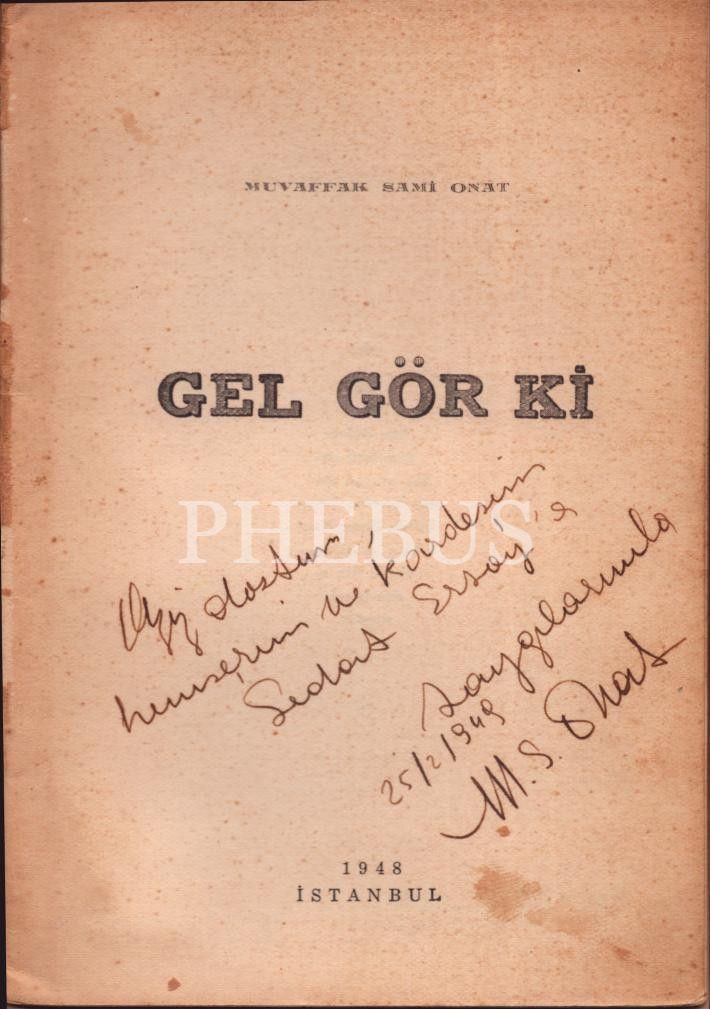 MUVAFFAK SAMİ ONAT
GEL GÖR Kİ
PHEBUS
Aziz dostum,
hemşerim ve kardeşim
Sedat Ersoy'a
saygılarımla
25/2/949
M. S. Onat
1948
İSTANBUL